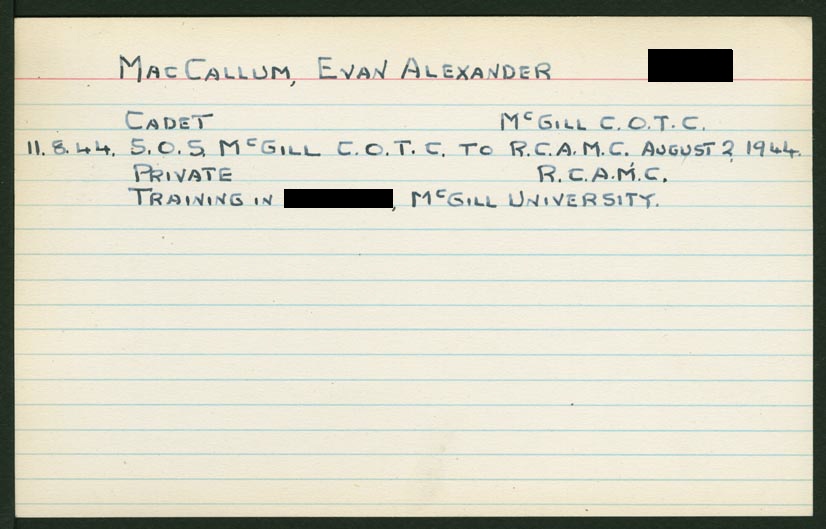 MacCallum, Evan Alexander
Cadet McGill C.O.T.C.
11.8.44. S.O.S. McGill C.O.T.C. to R.C.A.M.C. August 2, 1944.
Private R.C.A.M.C.
Training in , McGill University.